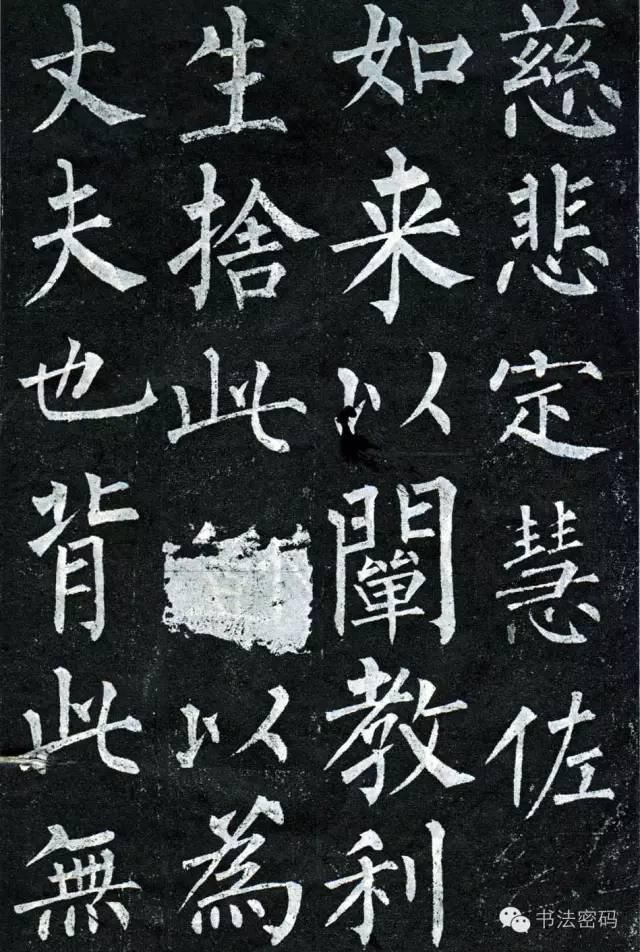 慈悲定慧佐
如来以闡教利
生捨此以為
丈夫也背此無
书法密码